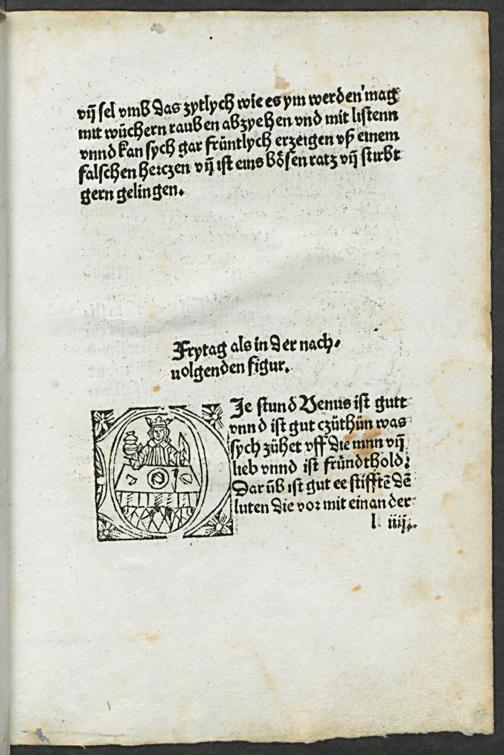 vñ sel vmb das zytlych wie es ym werden mag
mit wůchern rauben abzyehen vnd mit listenn
vnnd kan sych gar früntlych erzeigen vß einem
falschen herczen vñ ist eins bősen ratz vñ stirbt
gern gelingen.
Frytag als in der nach⸗
uolgenden figur.
Die stund Venus ist gutt
vnnd ist gut czůthůn was
sych zühet vff die mnn vñ
lieb vnnd ist fründthold:
Dar üb ist gut ee stifftē dē
luten die vor mit einander
l iiij.